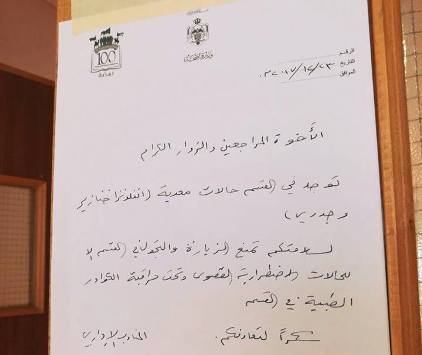 100
وزارة الصحة
الرقم
التاريخ ٢٣/١٢/٢٠١٧
الموافق
الأخوة المراجعين والزوار الكرام
توجد في القسم حالات معدية (انفلونزا خنازير
وجدري)
لسلامتكم تمنع الزيارة والتجول في القسم إلا
للحالات الاضطرارية القصوى وتحت مراقبة الكوادر
الطبية في القسم
شكراً لتعاونكم. المناوب الإداري